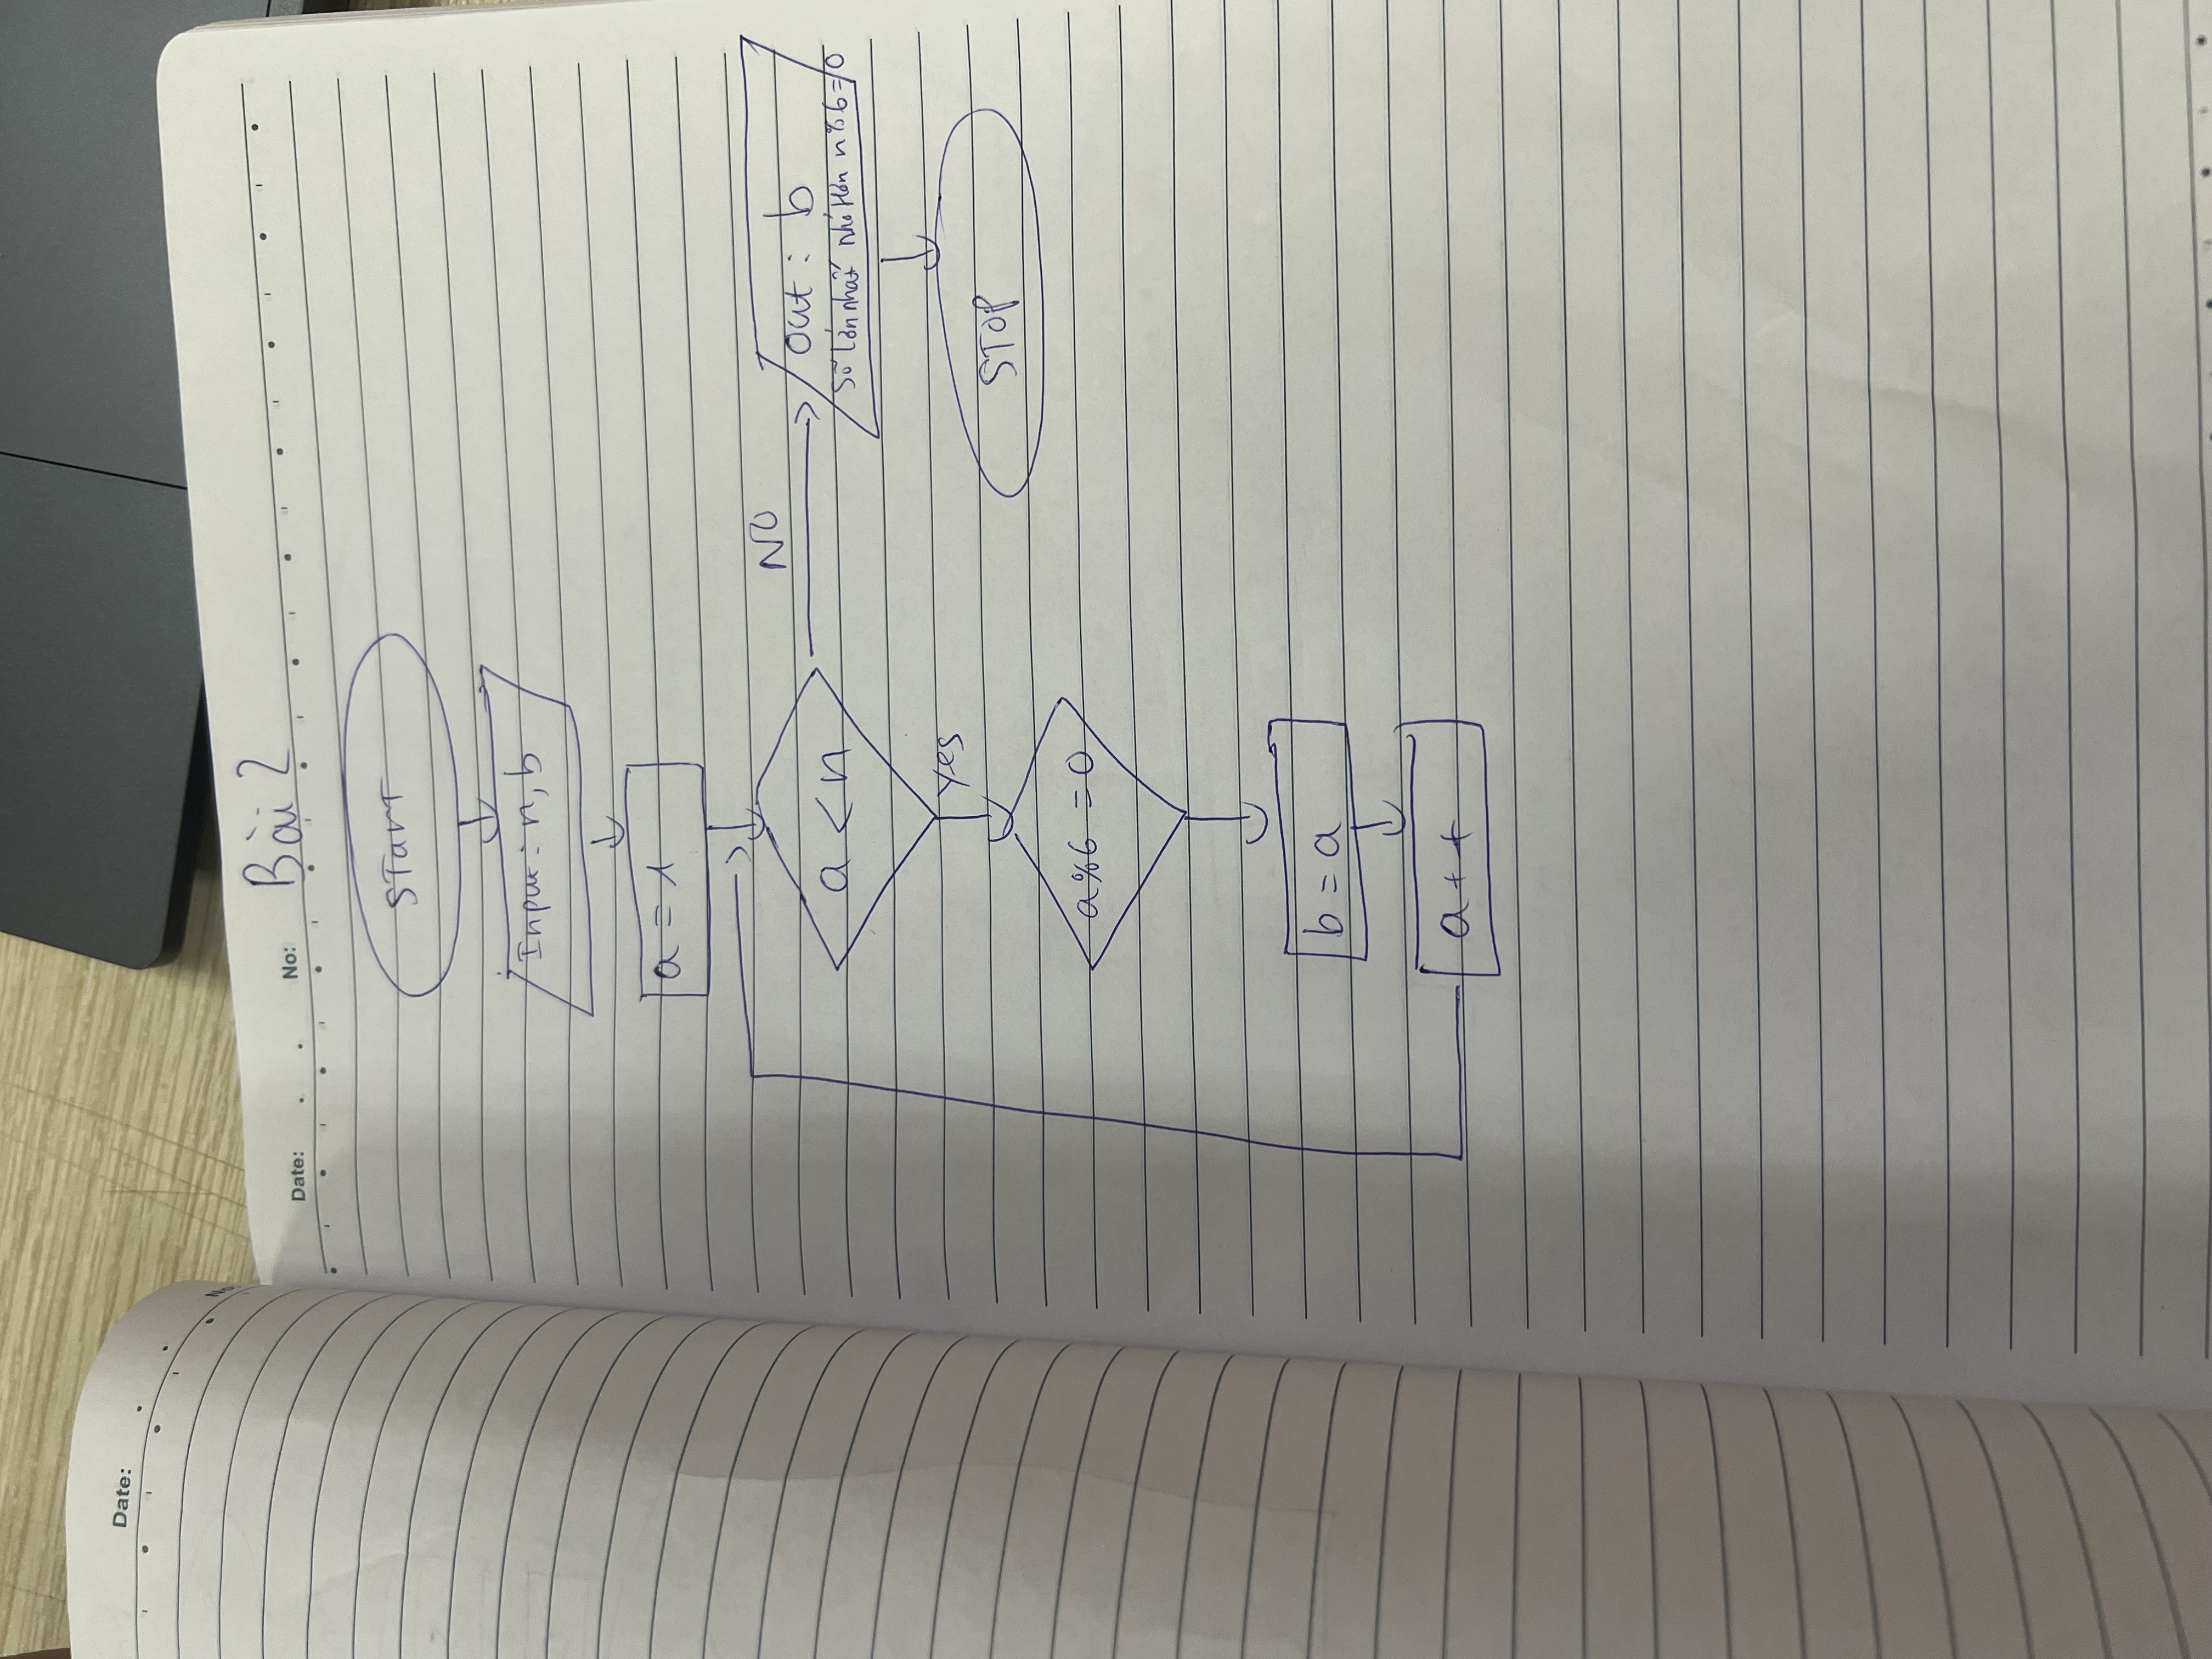 Date:
No:
Date:
No:
Bài 2
START
Input: n, b
a = 1
a < n
NO
out: b
Số lớn nhất nhỏ hơn n%6=0
Yes
STOP
a%6 = 0
b = a
a++